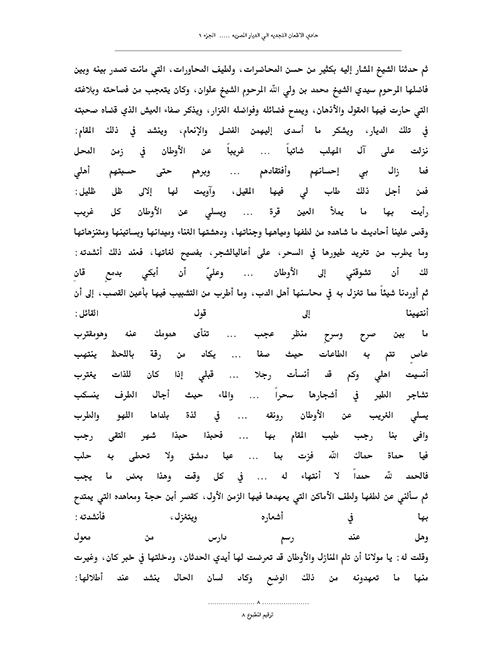 حادي الأظعان النجديه الي الديار المصريه ..... الجزء ١
ثم حدثنا الشيخ المشار إليه بكثير من حسن المحاضرات، ولطيف المحاورات، التي مانت تصدر بينه وبين
فاضلها المرحوم سيدي الشيخ محمد بن ولي الله المرحوم الشيخ علوان، وكان يتعجب من فصاحته وبلاغته
التي حارت فيها العقول والأذهان، ويمدح فضائله وفواضله الغزار، ويذكر صفاء العيش الذي قضاه صحبته
في تلك الديار، ويشكر ما أسدى إليهمن الفضل والإنعام، وينشد في ذلك المقام:
نزلت على آل المهلب شاتياً ... غريباً عن الأوطان في زمن المحل
فما زال بي إحسانهم وأفتقادهم ... وبرهم حتى حسبتهم أهلي
فمن أجل ذلك طاب لي فيها المقيل، وآويت لها إلالى ظل ظليل:
رأيت بها ما يملأ العين قرة ... ويسلي عن الأوطان كل غريب
وقص علينا أحاديث ما شاهده من لطفها ومياهها وجناتها، ودهشتها الغناء وميدانها وبساتينها ومتنزهاتها
وما يطرب من تغريد طيورها في السحر، على أعاليالشجر، بفصيح لغاتها، فعند ذلك أنشدته:
لك أن تشوقني إلى الأوطان ... وعليّ أن أبكي بدمعٍ قانِ
ثم أوردنا شيئاً مما تغزل به في محاسنها أهل الدب، وما أطرب من التشبيب فيها بأعين القصب، إلى أن
أنتهينا إلى قول القائل:
ما بين صرح وسرح منظر عجب ... تنأى همومك عنه وهومقترب
عاصٍ تتم به الطاعات حيث صفا ... يكاد من رقة باللحظ ينتهب
أنسيت اهلي وكم قد أنسأت رجلا ... قبلي إذا كان للذات يغترب
تشاجر الطير في أشجارها سحراً ... والماء حيث أجال الطرف ينسكب
يسلي الغريب عن الأوطان رونقه ... في لذة بلداها اللهو والطرب
وافى بنا رجب طيب المقام بها ... فحبذا حبذا شهر التقى رجب
فيا حماة حماك الله فزت بما ... عيا دمشق ولا تحظى به حلب
فالحمد لله حمداً لا أنتهاء له ... في كل وقت وهذا بعض ما يجب
ثم سألني عن لطفها ولطف الأماكن التي يعهدها فيها الزمن الأول، كقصر ابن حجة ومعاهده التي يمتدح
بها في أشعاره ويتغزل، فأنشدته:
وهل عند رسم دارس من معول
وقلت له: يا مولانا أن تلم المنازل والأوطان قد تعرضت لها أيدي الحدثان، ودخلتها في خبر كان، وغيرت
منها ما تعهدونه من ذلك الوضع وكاد لسان الحال ينشد عند أطلالها:
........................ ٨ ........................
ترقيم المطبوع ٨